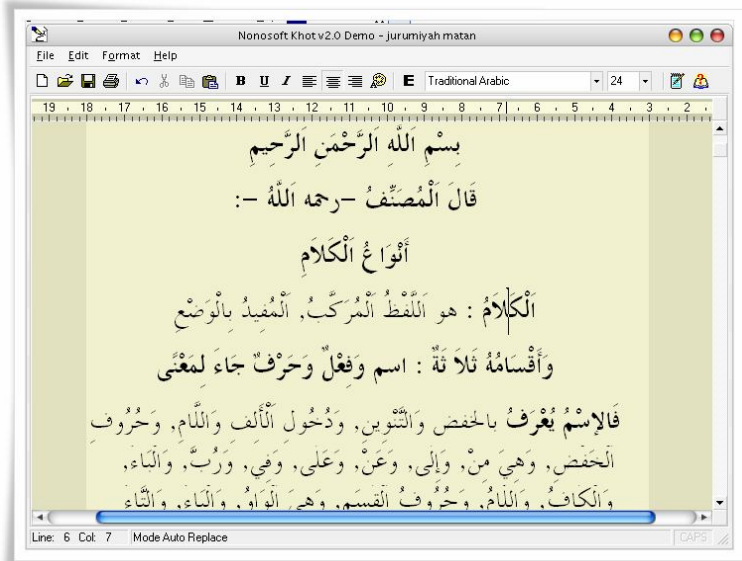 Nonosoft Khot v2.0 Demo - jurumiyah matan
File Edit Format Help
B U I E Traditional Arabic 24
19 18 17 16 15 14 13 12 11 10 9 8 7 6 5 4 3 2
بِسْمِ اَللَّهِ اَلرَّحْمَنِ اَلرَّحِيمِ
قَالَ اَلْمُصَنِّفُ –رحمه اَللَّهُ –:
أَنْوَاعُ اَلْكَلَامِ
اَلْكَلَامُ : هو اَللَّفْظُ اَلْمُرَكَّبُ, اَلْمُفِيدُ بِالْوَضْعِ
وَأَقْسَامُهُ ثَلَا ثَةٌ : اسم وَفِعْلٌ وَحَرْفٌ جَاءَ لِمَعْنًى
فَالِإسْمُ يُعْرَفُ بالخفض وَالتَّنْوِينِ, وَدُخُولِ اَلْأَلِف وَاللَّامِ, وَحُرُوف
اَلْخَفْضِ, وَهِيَ مِنْ, وَإِلَى, وَعَنْ, وَعَلَى, وَفِي, وَرُبَّ, وَالْبَاء,
وَالْكَافُ, وَاللَّامُ, وَحُرُوفُ اَلْقَسَمِ, وَهِيَ اَلْوَاوُ, وَالْبَاء, وَالتَّاءُ
Line: 6 Col: 7 Mode Auto Replace CAPS